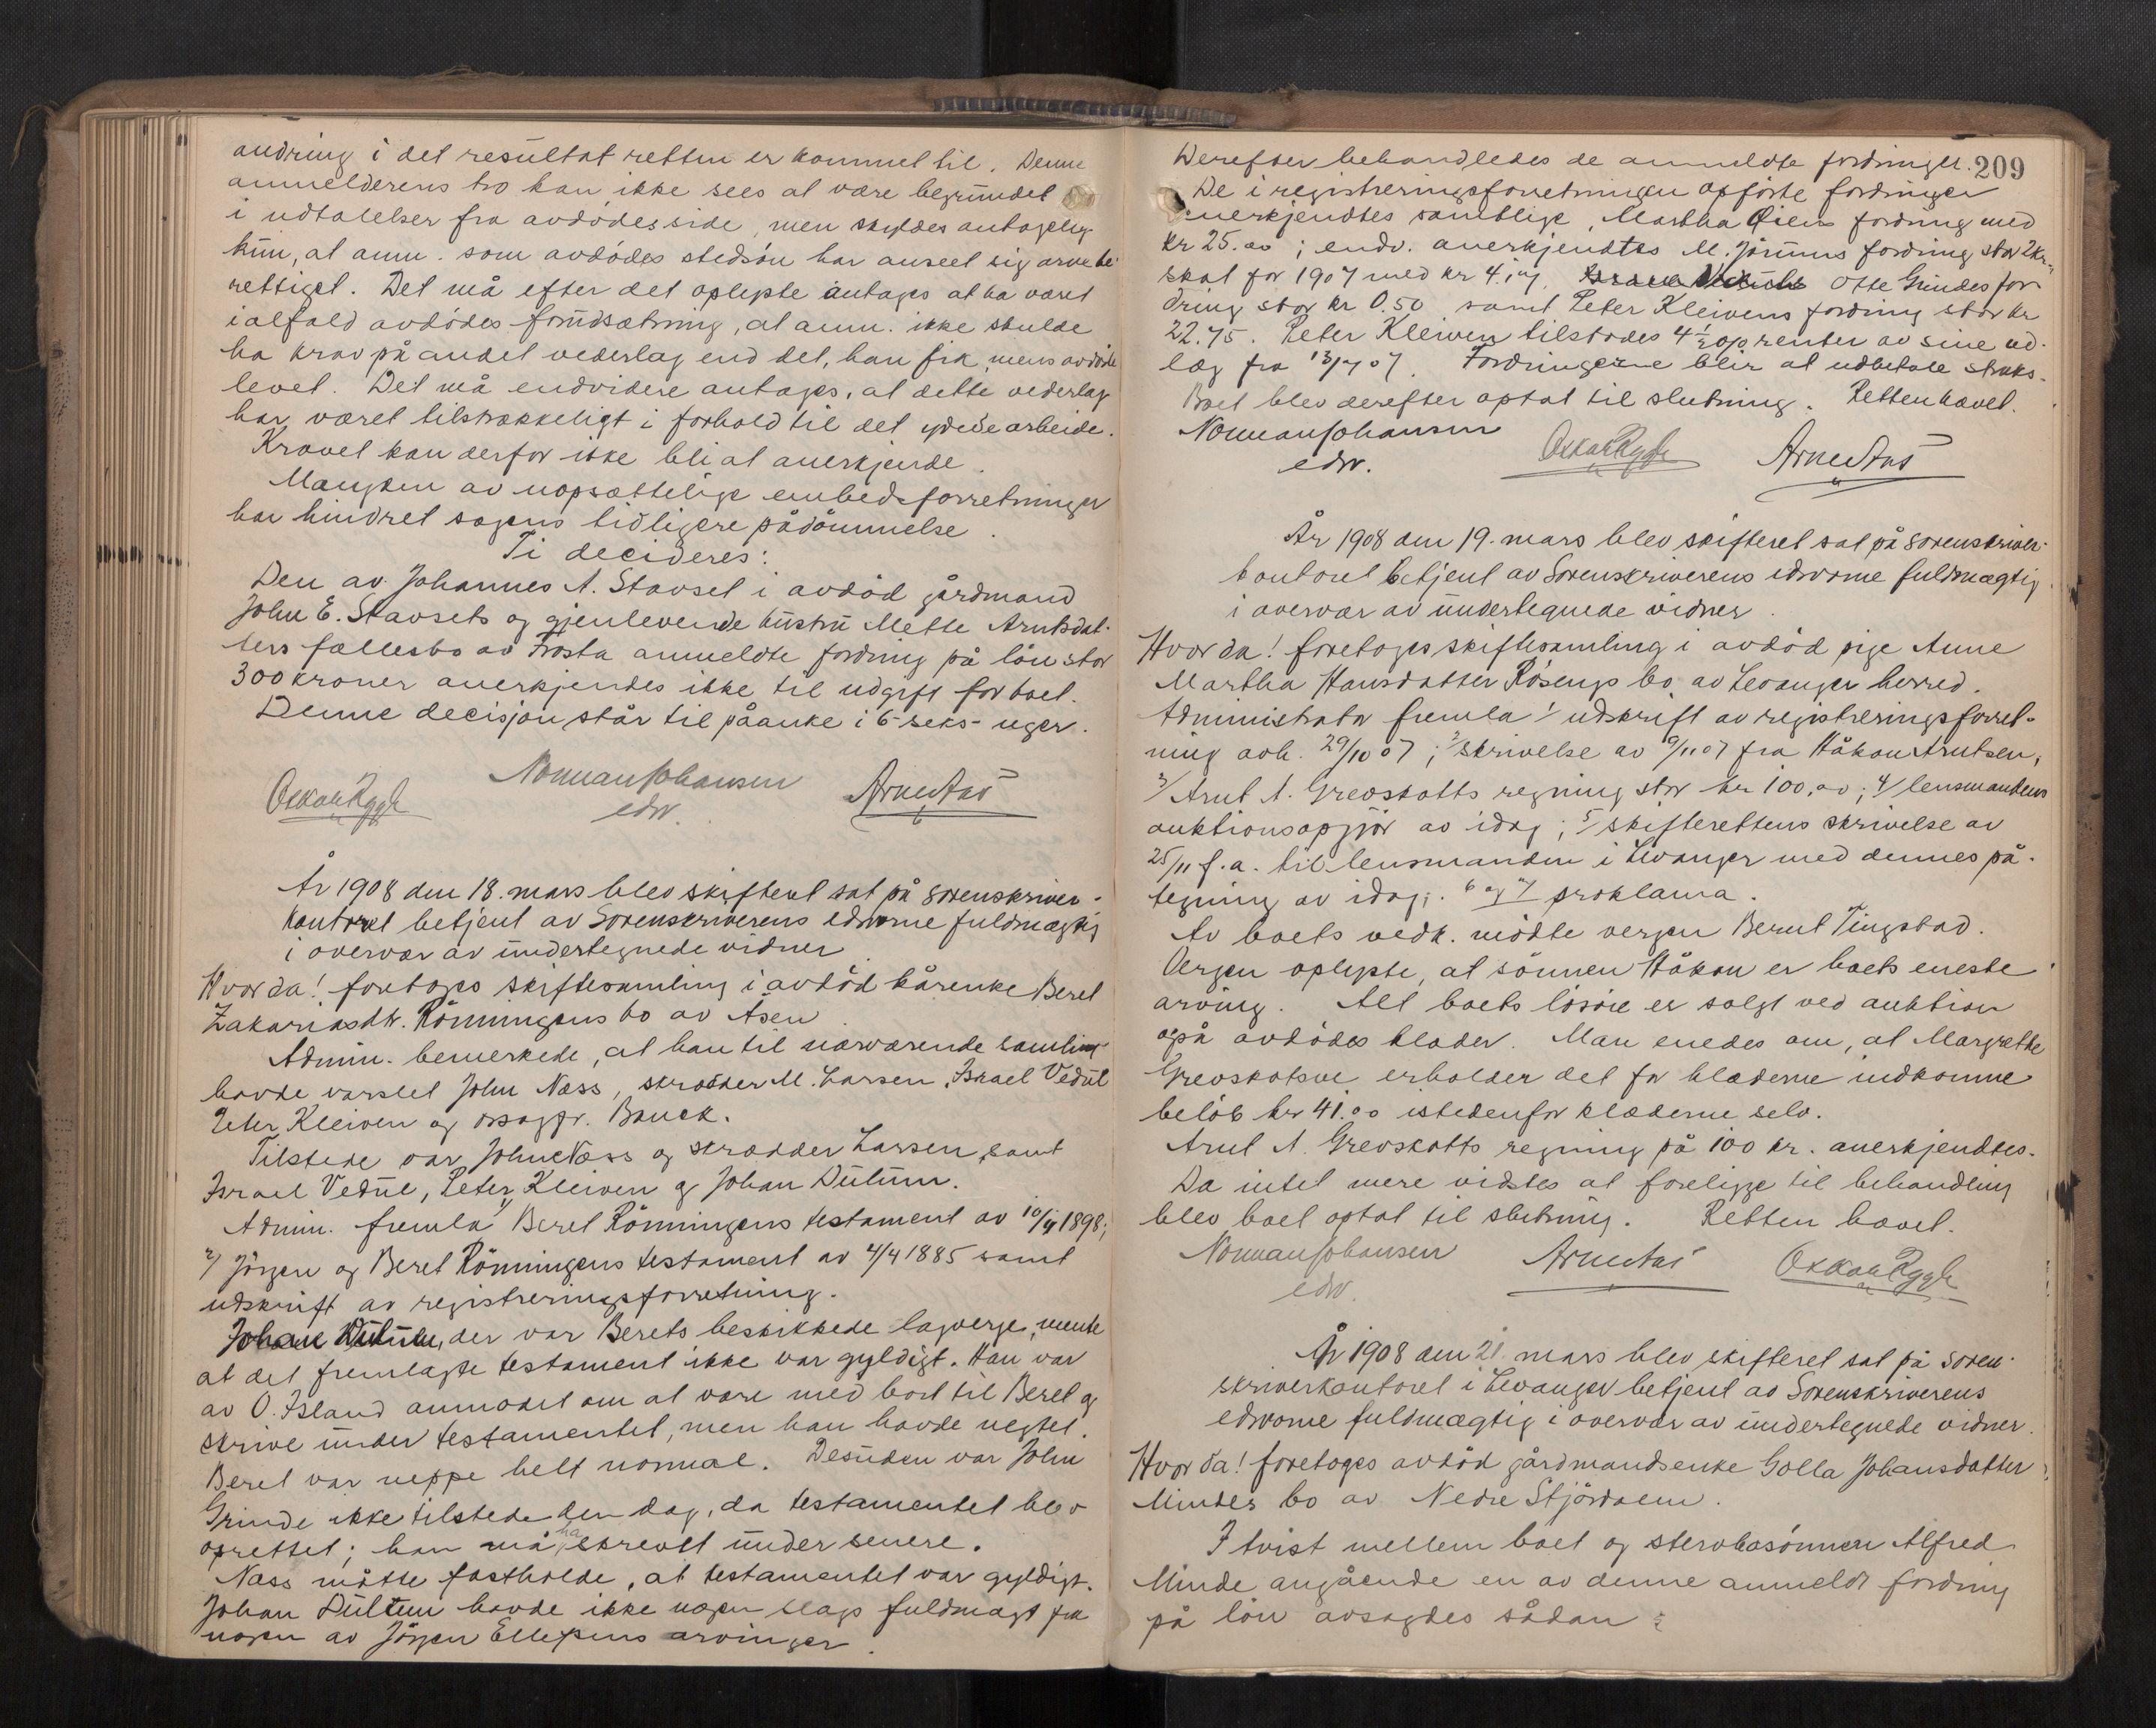 andring i det resultat retten er kommet til. Denne
anmelderens tro kan ikke sees at være begrundet
i udtalelser fra avdødes side, men skyldes antagelig
kun, at anm. som avdødes stedsön har anseet sig arvebe-
rettiget. Det må efter det oplyste antages at ha været
ialfald avdødes forudsætning, at anm. ikke skulde
ha krav på andet vederlag end det, han fik, mens avdøde
levet. Det må endvidere antages, at dette vederlag
har været tilstrækkeligt i forhold til det ydede arbeide.
Kravet kan derfor ikke bli at anerkjende.
Mangden av uopsættelige embedsforretninger
har hindret sagens tidligere pådömmelse.
Ti decideres:
Den av Johannes A. Stavset i avdöd gårdmand
John E. Stavsets og gjenlevende hustru Mette Arntsdat-
ters fællesbo av Frosta anmeldte fordring på lön stor
300 kroner anerkjendes ikke til udgift for boet.
Denne decisjon står til påanke i 6-seks-uger.
Oskar Rygh Norman Johansen Arne Aas
edsv.
År 1908 den 18. mars blev skifteret sat på sorenskriver-
kontoret betjent av Sorenskriverens edsvorne fuldmægtig
i overvær av undertegnede vidner
Hvorda! foretoges skiftesamling i avdöd kårenke Beret
Zakariasdtr. Rönningens bo av Åsen.
Admin. bemerkede, at han til nærværende samling
havde varslet John Næss, skrædder M. Larsen, Israel Vedul
Peter Kleiven og osagfr. Bauck.
Tilstede var John Næss og skrædder Larsen, samt
Israel Vedul, Peter Kleiven og Johan Dullum.
Admin. fremla 1/ Beret Rönningens testament av 10/4 1898;
2/ Jörgen og Beret Rönningens testament av 4/4 1885 samt
udskrift av registreringsforretning.
Johan Dullum, der var Berets beskikkede lagverge, mente
at det fremlagte testament ikke var gyldigt. Han var
av O. Island anmodet om at være med bort til Beret og
skrive under testamentet, men han havde negtet.
Beret var neppe helt normal. Desuden var John
Grinde ikke tilstede den dag, da testamentet blev
oprettet; han må ha skrevet under senere.
Næss måtte fastholde, at testamentet var gyldigt.
Johan Dullum havde ikke nogen slags fuldmagt fra
nogen av Jörgen Ellefsens arvinger.
209
Derefter behandledes de anmeldte fordringer.
De i registreringsforretningen opförte fordringer
anerkjendtes samtlige, Martha Öiens fordring med
kr 25.00; endv. anerkjendtes M. Jörums fordring stor 2 kr.,
skat for 1907 med kr 4.19, Otte Grindes for-
dring stor kr 0.50 samt Peter Kleivens fordring stor kr
22.75. Peter Kleiven tilstodes 4½ o/o renter av sine ud-
læg fra 13/7 07. Fordringerne blir at udbetale straks.
Boet blev derefter optat til slutning. Retten hævet.
Norman Johansen Oskar Rygh Arne Aas
edsv.
År 1908 den 19. mars blev skifteret sat på sorenskriver-
kontoret betjent av Sorenskriverens edsvorne fuldmægtig
i overvær av undertegnede vidner.
Hvorda! foretoges skiftesamling i avdöd pige Anne
Martha Hansdatter Rösengs bo av Levanger herred.
Administrator fremla 1/ udskrift av registreringsforret-
ning avh. 29/10 07; 2/ skrivelse av 9/11 07 fra Håkon Arntsen;
3/ Arnt A. Grevskotts regning stor kr 100,00; 4/ lensmandens
auktionsopgjör av idag; 5/ skifterettens skrivelse av
25/11 f.a. til lensmanden i Levanger med dennes på-
tegning av idag; 6 og 7/ proklama.
Av boets vedk. mödte vergen Bernt Tingstad.
Vergen oplyste, at sönnen Håkon er boets eneste
arving. Alt boets lösöre er solgt ved auktion
også avdödes klæder. Man enedes om, at Margrethe
Grevskotsve erholder det for klæderne indkomne
belöb kr 41.00 istedenfor klæderne selv.
Arnt A. Grevskotts regning på 100 kr. anerkjendtes.
Da intet mere vidstes at foreligge til behandling
blev boet optat til slutning. Retten hævet.
Norman Johansen Arne Aas Oskar Rygh
edsv.
År 1908 den 21. mars blev skifteret sat på soren-
skriverkontoret i Levanger betjent av Sorenskriverens
edsvorne fuldmægtig i overvær av undertegnede vidner.
Hvorda! foretoges avdöd gårdmandsenke Golla Johansdatter
Mindes bo av Nedre Stjördalen.
I tvist mellem boet og stervbosönnen Alfred
Minde angående en av denne anmeldt fordring
på lön avsagdes sådan: